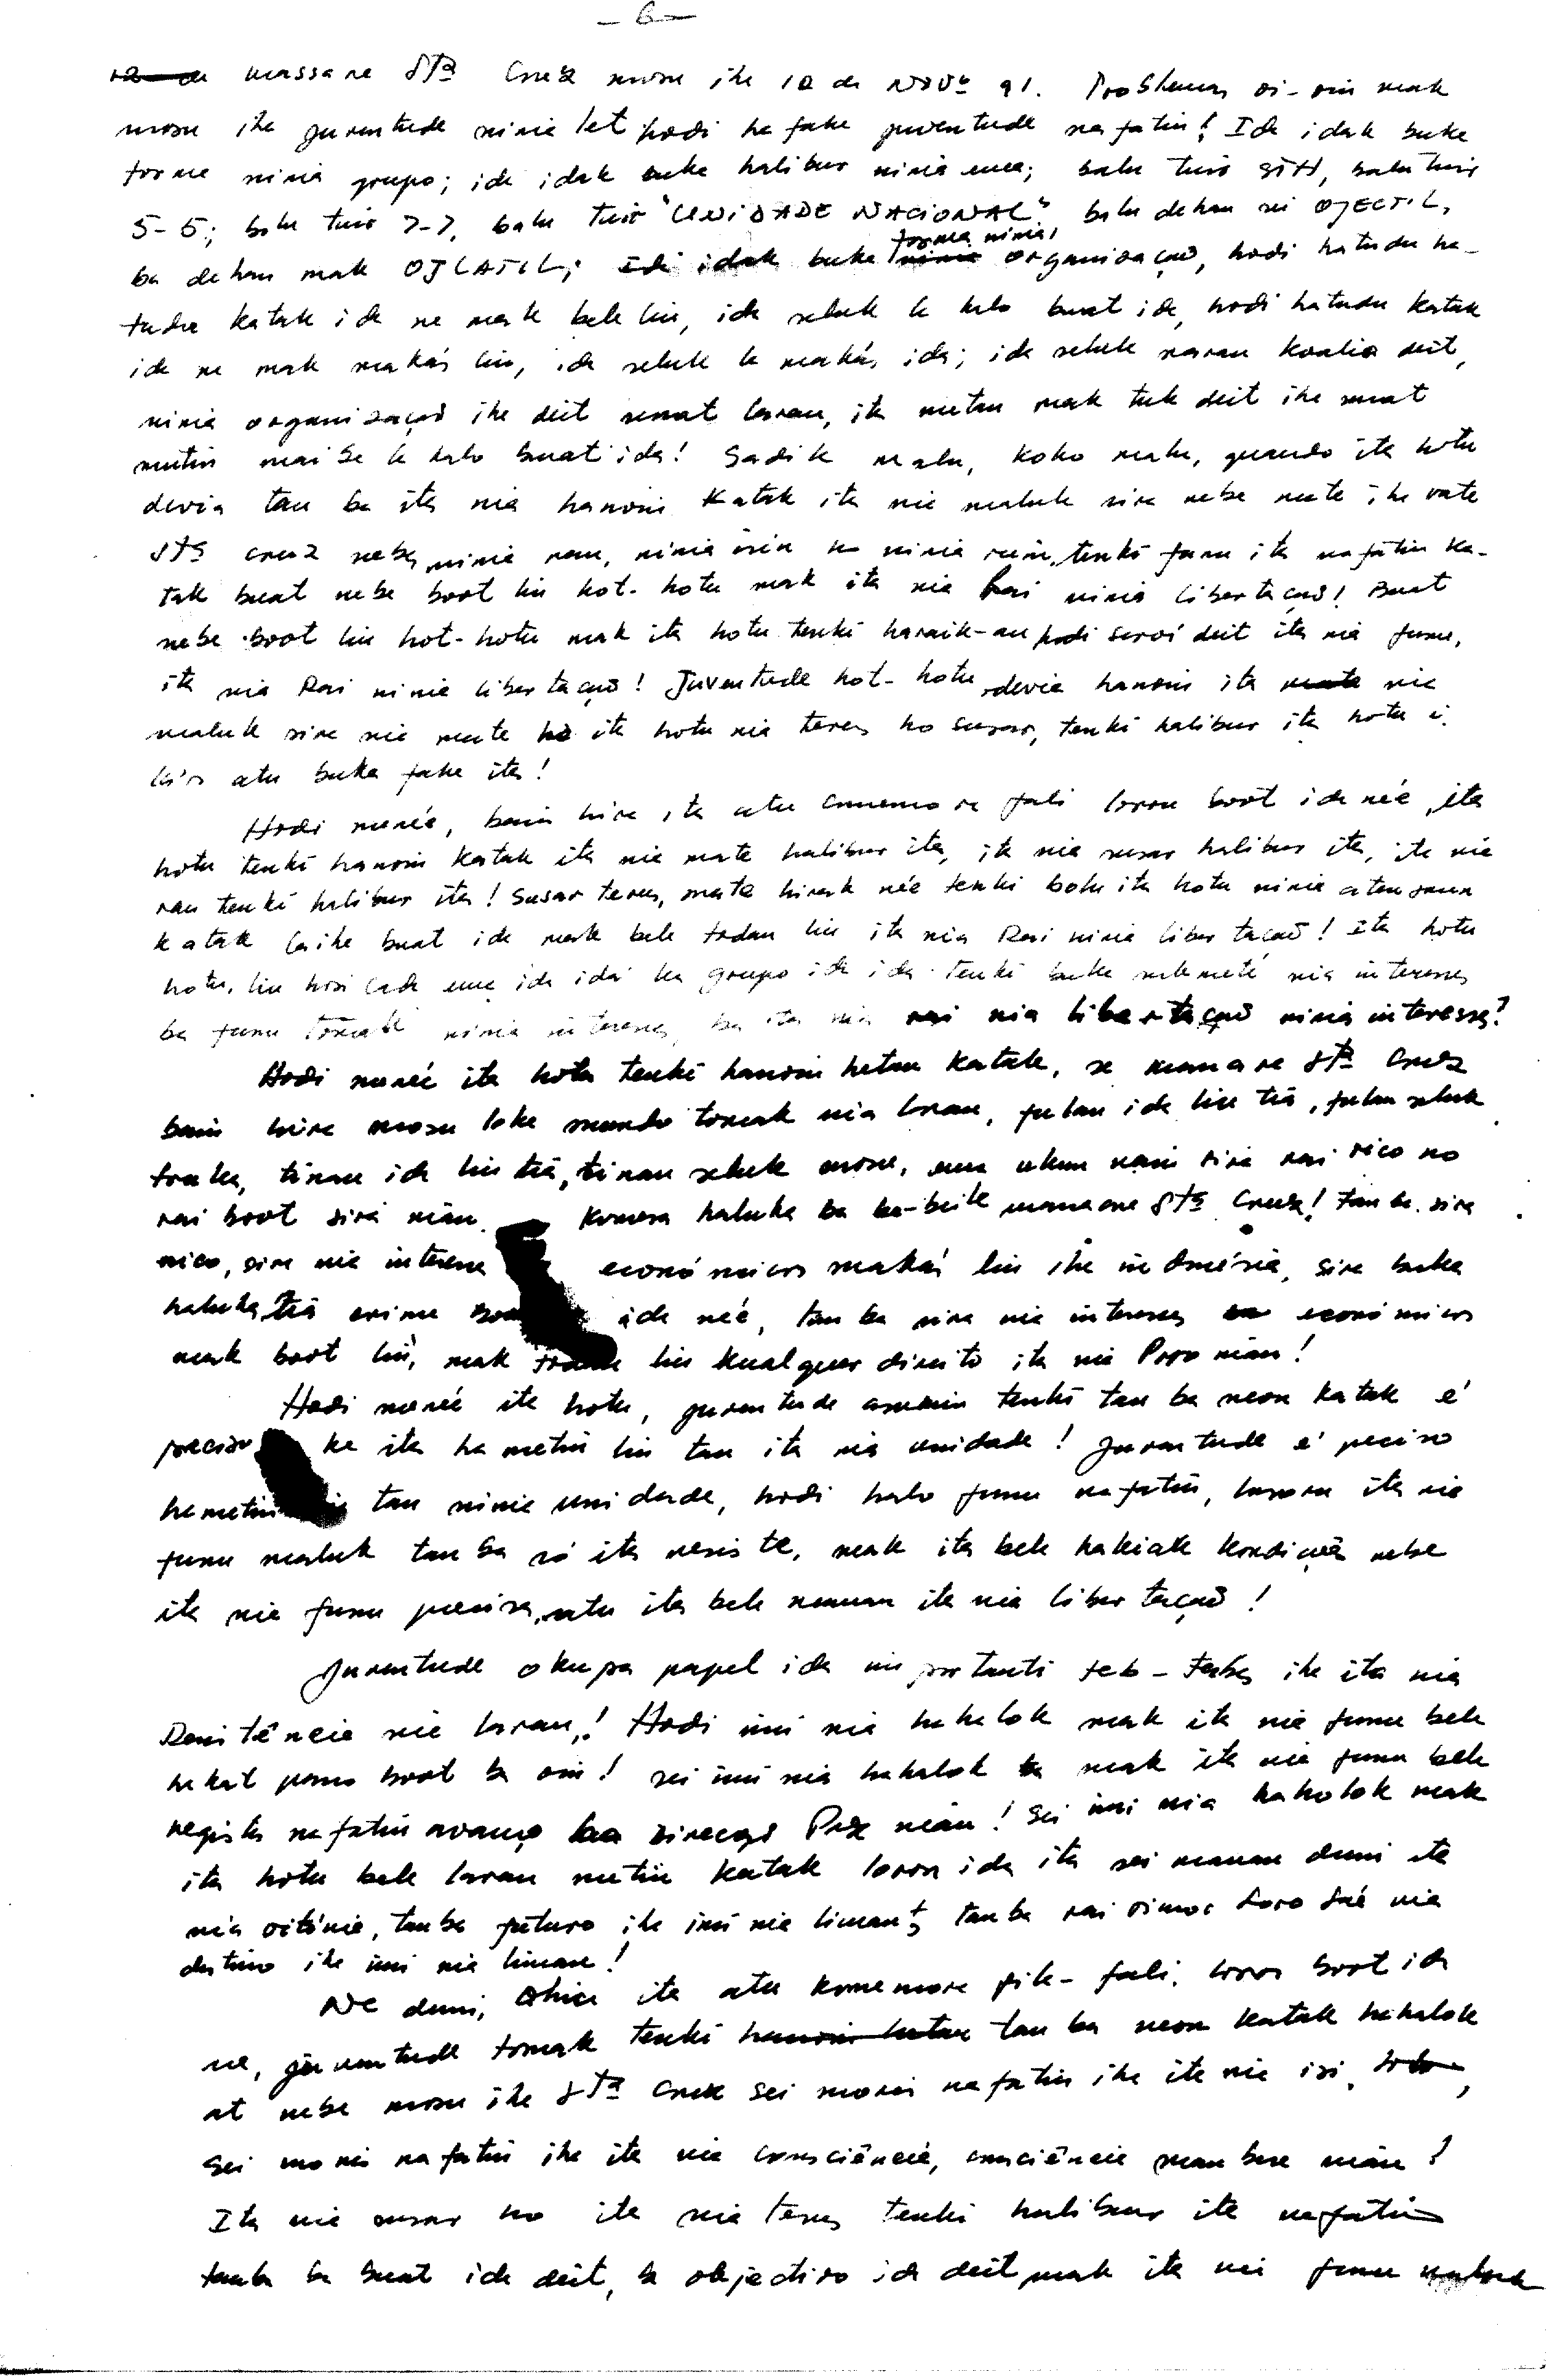 - 6 -
massacre Sta Cruz mosu ihe 12 de Novº 91. Problemas oi-oin mak
mosu ihe juventude ninia let hodi hafahe juventude nafatin! Ida idak buka
forma ninia grupo; ida idak buka halibur ninia ema; balu tuir 5777, balu tuir
5-5; balu tuir 7-7, balu tuir "UNIDADE NACIONAL". balu dehan sei OJECTIL,
ba dehan mak OJLATIL; Ida idak buka forma ninia organização, hodi hatudu ha-
tudu katak ida ne mak bele liu, ida seluk la halo buat ida, hodi hatudu katak
ida ne mak makás liu, ida seluk la makás ida; ida seluk naran koalia deit,
ninia organização ihe deit surat laran, ita metan mak tuk deit ihe surat
mutin maibe la halo buat ida! Sadik malu, koko malu, quando ita hotu
devia tau ba ita nia hanoin katak ita nia maluk sira nebe mate ihe rate
Sta Cruz nebe, ninia ran, ninia isin ho ninia ruin, tenki fanu ita nafatin ka-
tak buat nebe boot liu hot-hotu mak ita nia Rai ninia libertação! Buat
nebe boot liu hot-hotu mak ita hotu tenki haraik-an hodi serví deit ita nia funu,
ita nia Rai ninia libertação! Juventude hot-hotu devia hanoin ita nia
maluk sira nia mate ita hotu nia terus ho susar, tenki halibur ita hotu i
la'os atu buka fahe ita!
Hodi nune'e, bain hira ita atu comemora fali loron boot ida ne'e, ita
hotu tenki hanoin katak ita nia mate halibur ita, ita nia susar halibur ita, ita nia
ran tenki halibur ita! Susar terus, mate hirak ne'e tenki bolu ita hotu ninia atensaun
katak laihe buat ida mak bele todan liu ita nia Rai ninia libertação! Ita hotu
hotu, liu hosi cada ema ida ida ka grupo ida ida tenki buka submeté nia interesse
ba funu tomak ninia interesse, ba ita nia rai nia libertação ninia interesse!
Hodi nune'e ita hotu tenki hanoin hetan katak, se masacre Sta Cruz
bain hira mosu loke mundo tomak nia laran, fulan ida liu tiá, fulan seluk
troka, tinan ida liu tiá, tinan seluk mosu, ema ukun nain sira rai rico no
rai boot sira nian komesa haluha ba be-beik masacre Sta Cruz! Tan ba sira
rico, sira nia interesse económicos makás liu ihe indonésia, sira buka
haluha tiá crime ida ne'e, tan ba sira nia interesses económicos
mak boot liu, mak liu kualquer direito ita nia Povo nian!
Hodi nune'e ita hotu, juventude tenki tau ba neon katak é
preciso ke ita hametin liu tan ita nia unidade! Juventude é preciso
hametin tan ninia unidade, hodi halo funu nafatin, lasara ita nia
funu maluk tan ba só ita resiste, mak ita bele hakiak kondições nebe
ita nia funu precisa, atu ita bele manan ita nia libertação!
Juventude okupa papel ida importanti teb-tebes ihe ita nia
Resistência nia laran! Hodi imi nia hahalok mak ita nia funu bele
hakat passo boot ba oin! Sei imi nia hahalok mak ita nia funu bele
regista nafatin avanço ba direcção Paz nian! Sei imi nia hahalok mak
ita hotu bele laran metin katak loron ida ita sei manan duni ita
nia vitória, tan ba futuro ihe imi nia liman, tan ba rai Timor Loro Sa'e nia
destino ihe imi nia liman!
Ne duni, ita atu komemora fila-fali loron boot ida
ne, juventude tomak tenki tau ba neon katak hahalok
at nebe mosu ihe Sta Cruz sei moris nafatin ihe ita nia isi,
sei moris nafatin ihe ita nia consciência, consciência maubere nian!
Ita nia susar ho ita nia terus tenki halibur ita nafatin
tan ba buat ida deit, ba objectivo ida deit mak ita nia funu